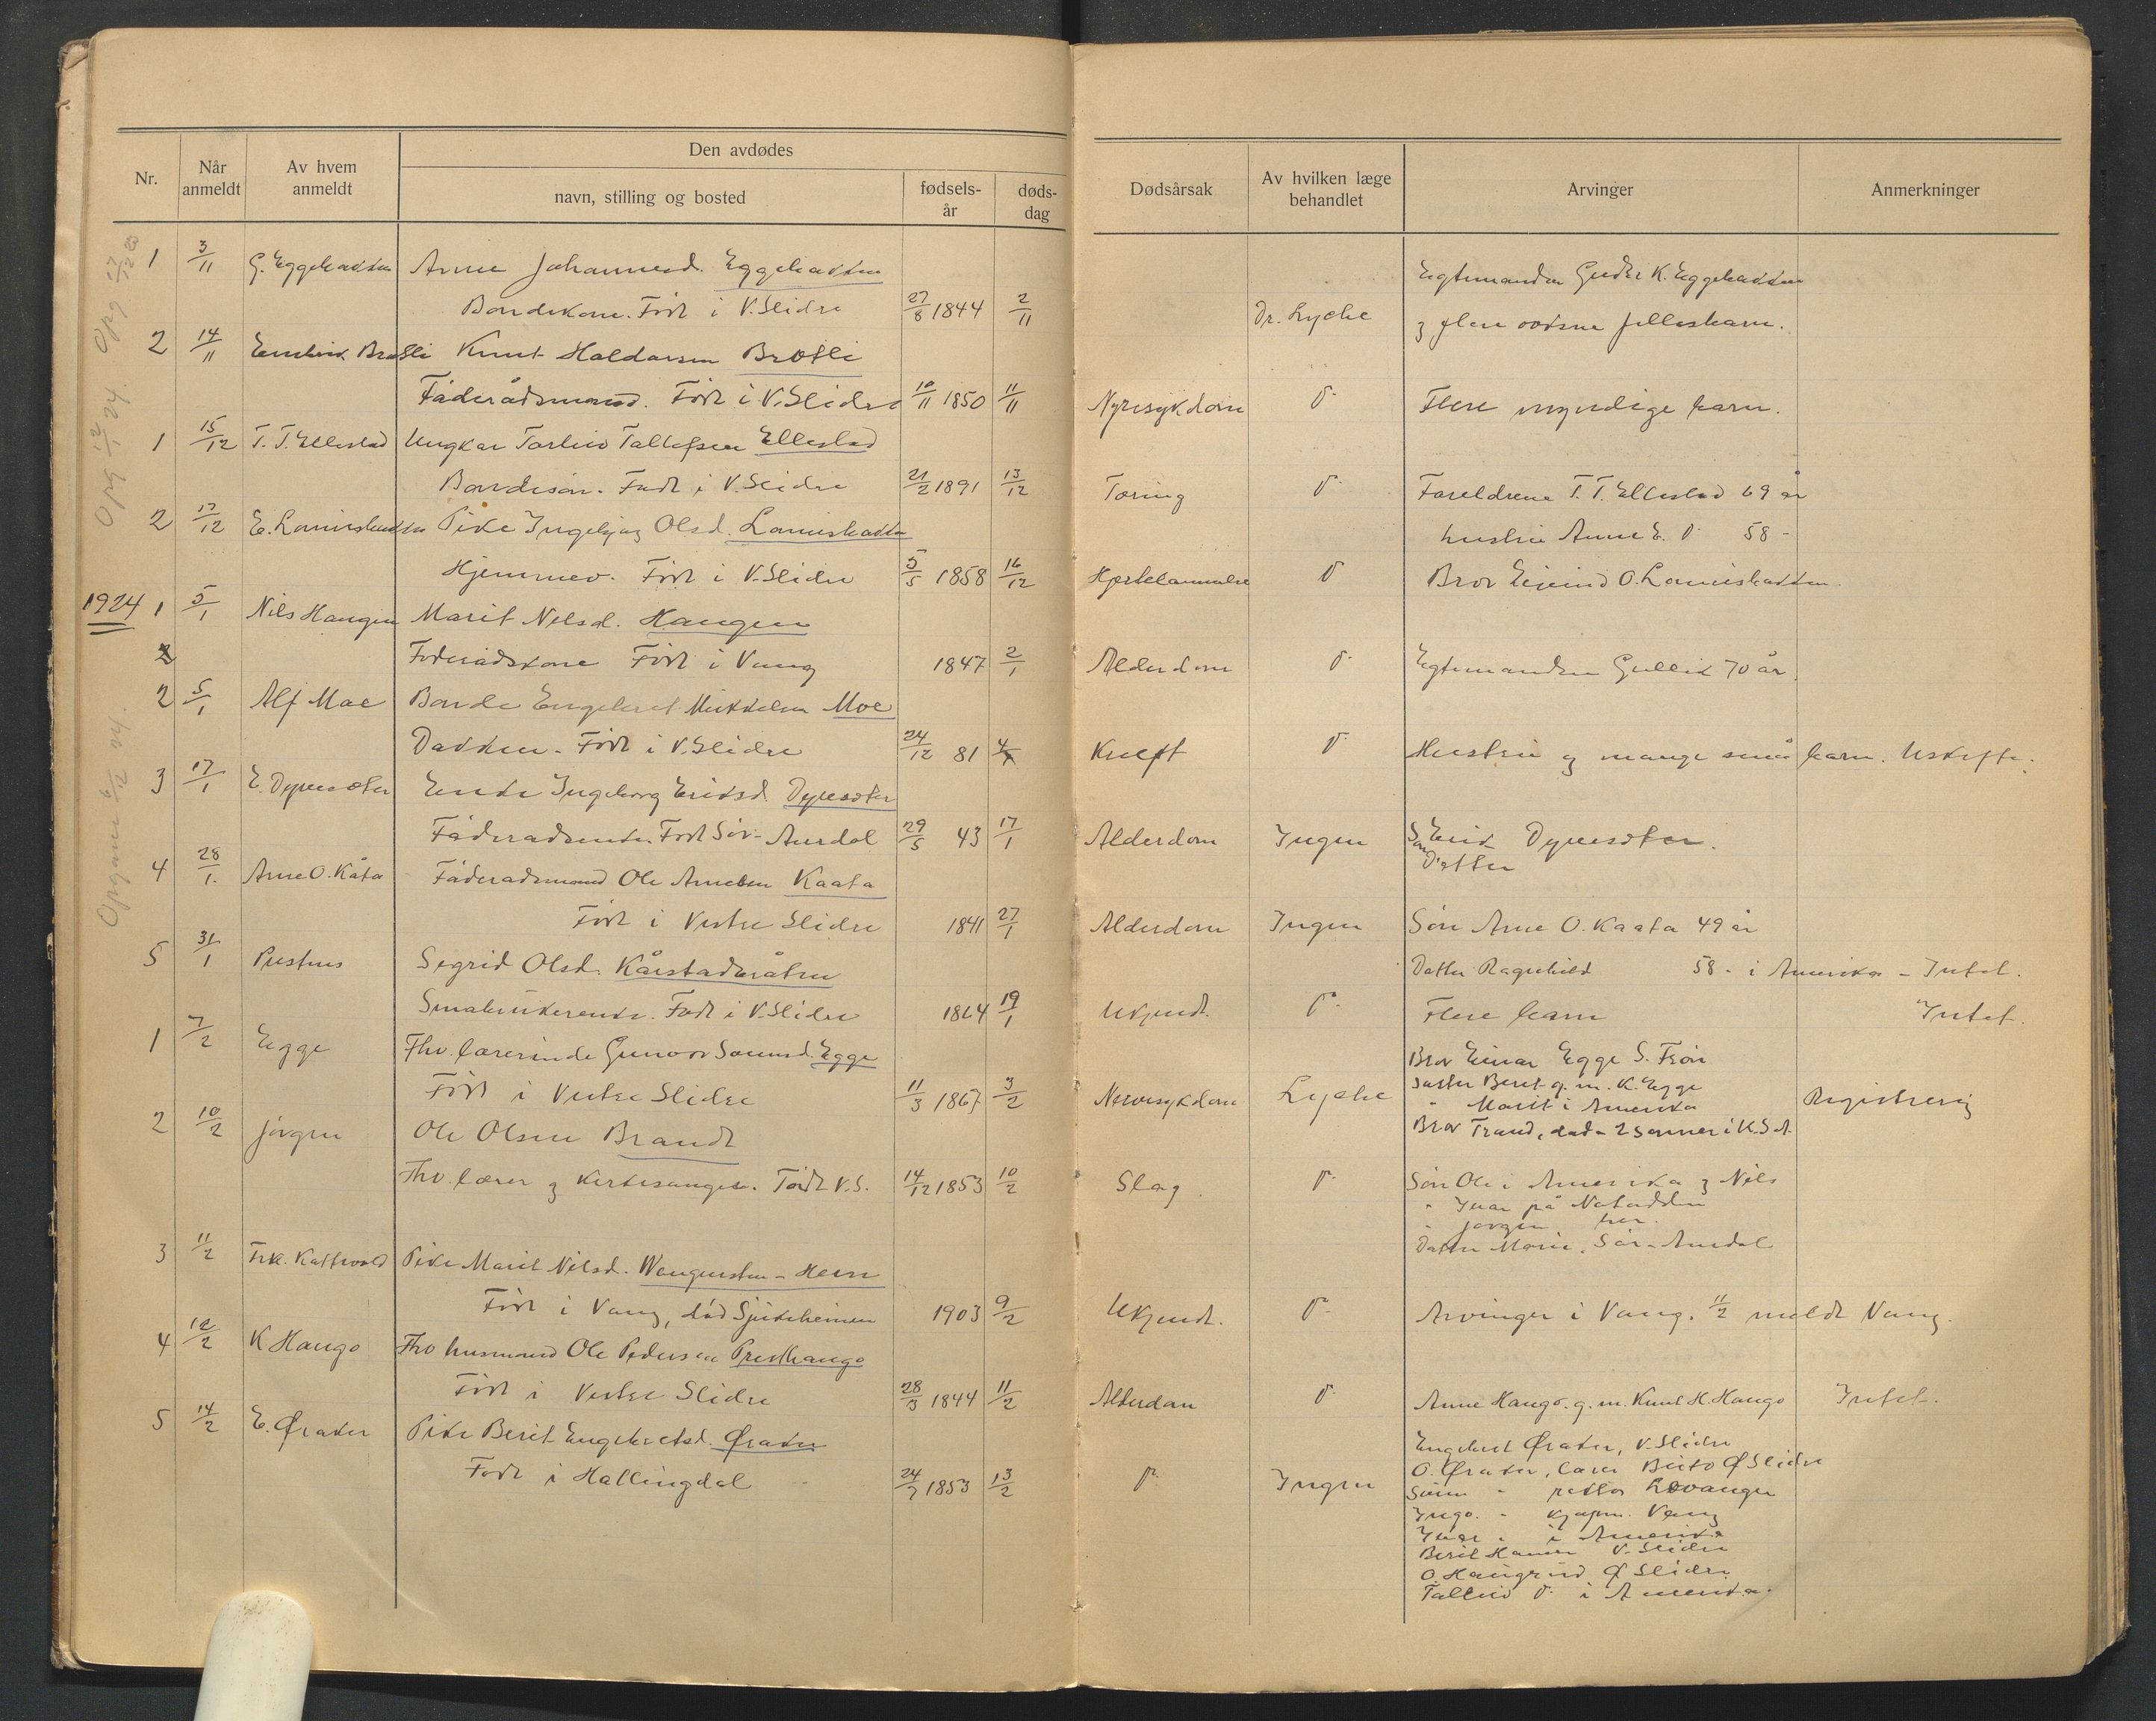 Den avdødes
Nr.
Når anmeldt
Av hvem anmeldt
navn, stilling og bosted
fødsels-år
døds-dag
Dødsårsak
Av hvilken læge behandlet
Arvinger
Anmerkninger
1 3/11 G. Eggebakken Anne Johannesd. Eggebakken Egtemanden K. Eggebakken
Bondekone. Født i V. Slidre 27/8 1844 2/11 Dr. Lyche g flere voksne fellesbarn.
2 14/11 Brøtli Knut Haldorsen Brøtli
Føderådsmand. Født i V. Slidre 10/11 1850 11/11 Nyresykdom Flere myndige barn.
1 15/12 T. T. Ellestad Ungkar Torleiv Tollefsen Ellestad
Bondesøn. Født i V. Slidre 21/2 1891 13/12 Tæring Foreldrene T. T. Ellestad 69 år
hustru Anne E. 58 -
2 17/12 E. Lomisbakken Pike Ingebjørg Olsd. Lomisbakken
Hjemmev. Født i V. Slidre 5/5 1858 16/12 Hjertelammelse Bror Eivind O. Lomisbakken
1924 1 5/1 Nils Haugen Marit Nilsd. Haugen
2 Føderådskone Født i Vang 1847 2/1 Alderdom Egtemanden Gullik 70 år.
2 5/1 Alf Moe Bonde Engebret Mikkelsen Moe
Døkken. Født i V. Slidre 24/12 81 4/1 Kreft Hustru og mange små barn. Uskifte.
3 17/1 E. Dyresæter Enke Ingeborg Eriksd. Dyresæter
Føderadsenke. Født Sør-Aurdal 29/5 43 17/1 Alderdom Ingen Søn Erik Dyresæter.
Datter
4 28/1 Arne O. Kåta Føderadsmand Ole Arnesen Kaata
Født i Vestre Slidre 1841 27/1 Alderdom Ingen Søn Arne O. Kaata 49 år
5 31/1 Sigrid Olsd. Kårstadbråten Datter Ragnhild 58 - i Amerika - Intet.
Småbrukerenke. Født i V. Slidre 1864 19/1 Ukjendt. Flere barn Intet.
1 7/2 Egge Fhv. lærerinde Gunvor Egge Bror Einar Egge S. Fron
Søster Berit g. m. K. Egge
Født i Vestre Slidre 11/3 1867 3/2 Nervesykdom Lyche " Marit i Amerika Registrering
2 10/2 Jørgen Ole Olsen Brandt Bror Trond, død - 2 sønner i
Fhv. lærer g kirkesanger. Født V.S. 14/12 1853 10/2 Slag Søn Ole i Amerika g Nils
" Ivar på Notodden
" Jørgen her.
Datter Marie, Sør-Aurdal
3 11/2 Frk. Pike Marit Nilsd.
Født i Vang, død Sjukeheimen 1903 9/2 Ukjendt. Arvinger i Vang. 11/2 meldt Vang.
4 12/2 K Haugo Fhv husmand Ole Pedersen Presthaugo
Født i Vestre Slidre 28/3 1844 11/2 Alderdom Anne Haugo. g. m. Knut H. Haugo Intet.
5 14/2 E. Øraker Pike Berit Engebretsd. Øraker Engebret Øraker, V. Slidre
Født i Hallingdal 24/7 1853 13/2 Ingen O. Øraker, lærer Ø Slidre
" Levanger
" kjøpm. Vang
Ivar " i Amerika
Berit V. Slidre
O. Ø Slidre
i Amerika.